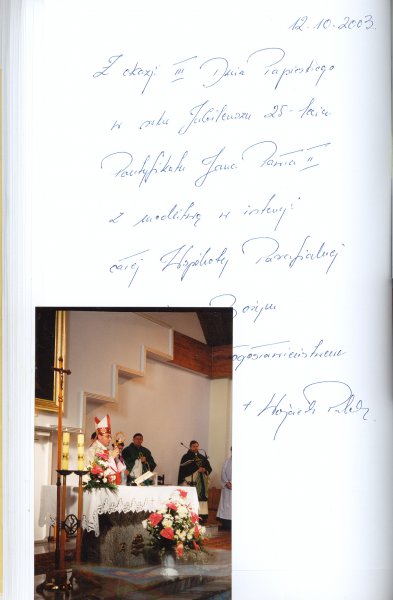 12-10-2003.
Z okazji III Dnia Papieskiego
w roku Jubileuszu 25-lecia
Pontyfikatu Jana Pawła II
z modlitwą w intencji
całej Wspólnoty Parafialnej
Bożym
ogosławieństwem
+ Wojciech Polak